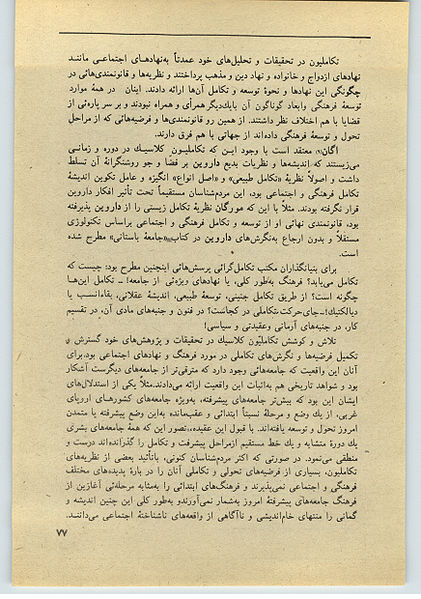 تکاملیون در تحقیقات و تحلیل‌های خود عمدتاً به‌نهادهـای اجتماعـی ماننـد
نهادهای ازدواج و خانواده و نهاد دین و مذهب پرداختند و نظریه‌ها و قانونمندی‌هائی در
چگونگی این نهادها و نحوهٔ توسعه و تکامل آن‌ها ارائه دادند. اینان در همهٔ موارد
توسعهٔ فرهنگی وابعاد گوناگون آن بایك‌دیگر همرأی و همراه نبودند و بر سر پاره‌ئی از
قضایا با هم اختلاف نظر داشتند. از همین رو قانونمندی‌ها و فرضیه‌هائی که از مراحل
تحول و توسعهٔ فرهنگی داده‌اند از جهاتی با هم فرق دارند.
معتقد است با وجود این که تکاملیـون کلاسیـك در دوره و زمانـی
می‌زیستند که اندیشه‌ها و نظریات بدیع داروین بر فضا و جو روشنگرانهٔ آن تسلط
داشت و اصولاً نظریهٔ «تکامل طبیعی» و «اصل انواع» انگیزه و عامل تکوین اندیشهٔ
تکامل فرهنگی و اجتماعی بود، این مردم‌شناسان مستقیماً تحت تأثیر افکار داروین
قرار نگرفته بودند. مثلاً با این که مورگان نظریهٔ تکامل زیستی را از داروین پذیرفته
بود، قانونمندی نهائی او از توسعه و تکامل فرهنگی و اجتماعی براساس تکنولوژی
مستقلاً و بدون ارجاع به‌نگرش‌های داروین در کتاب «جامعهٔ باستانی» مطرح شده
است.
برای بنیانگذاران مکتب تکامل‌گرائی پرسش‌هائی اینچنین مطرح بود: چیست که
تکامل می‌یابد؟ فرهنگ به‌طور کلی، یا نهادهای ویژه‌ئی از جامعه! ـ تکامل این‌ها
چگونه است؟ از طریق تکامل جنینی، توسعهٔ طبیعی، اندیشهٔ عقلانی، بقاءانسب یا
دیالکتیك! ـ جای حرکت تکاملی در کجاست؟ در فنون و جنبه‌های مادی آن، در تقسیم
کار، در جنبه‌های آرمانی وعقیدتی و سیاسی!
تلاش و کوشش تکاملیّون کلاسیك در تحقیقات و پژوهش‌های خود گسترش و
تکمیل فرضیه‌ها و نگرش‌های تکاملی در مورد فرهنگ و نهادهای اجتماعی بود. برای
آنان این واقعیت که جامعه‌هائی وجود دارد که مترقی‌تر از جامعه‌های دیگرست آشکار
بود و شواهد تاریخی هم به‌اثبات این واقعیت ارائه می‌دادند. مثلاً یکی از استدلال‌های
ایشان این بود که بیش‌تر جامعه‌های پیشرفته، به‌ویژه جامعه‌های کشورهـای اروپای
غربی، از یك وضع و مرحلهٔ نسبتاً ابتدائی و عقب‌مانده به‌این وضع پیشرفته یا متمدن
امروز تحول و توسعه یافته‌اند. با قبول این عقیده، تصور این که همهٔ جامعه‌های بشری
یك دورهٔ متشابه و یك خط مستقیم ازمراحل پیشرفت و تکامل را گذرانده‌اند درست و
منطقی می‌نمود. در صورتی که اکثر مردم‌شناسان کنونی، باتأئید بعضی از نظریه‌های
تکاملیون، بسیاری از فرضیه‌های تحولی و تکاملی آنان را در بارهٔ پدیده‌های مختلف
فرهنگی و اجتماعی نمی‌پذیرند و فرهنگ‌های ابتدائی را به‌مثابه مرحله‌ئی آغازین از
فرهنگ جامعه‌های پیشرفتهٔ امروز به‌شمار نمی‌آورندو به‌طور کلی این چنین اندیشه و
گمانی را منتهای خام‌اندیشی و ناآگاهی از واقعه‌های ناشناختهٔ اجتماعی می‌داننـد.
۷۷